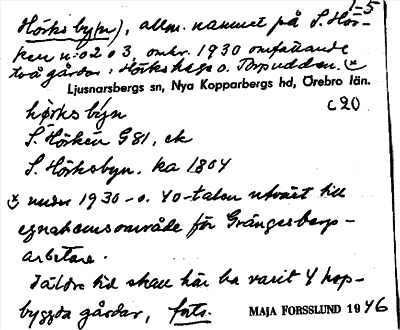 1-5
Hörks by(n), allm. namnet på S. Hör-
ken n:o 2 o 3, omkr. 1930 omfattande
två gårdar: Hörkshage o. Torpudden. x)
Ljusnarsbergs sn, Nya Kopparbergs hd, Örebro län.
c20.
hørks býn
S. Hörken G81, ek
S. Hörksbyn, ka 1864
x) under 1930- o. 40-talen utväxt till
egnahemsområde för Grängesbergs-
arbetare.
I äldre tid skall här ha varit 4 hop-
byggda gårdar, fats.
MAJA FORSSLUND 1946